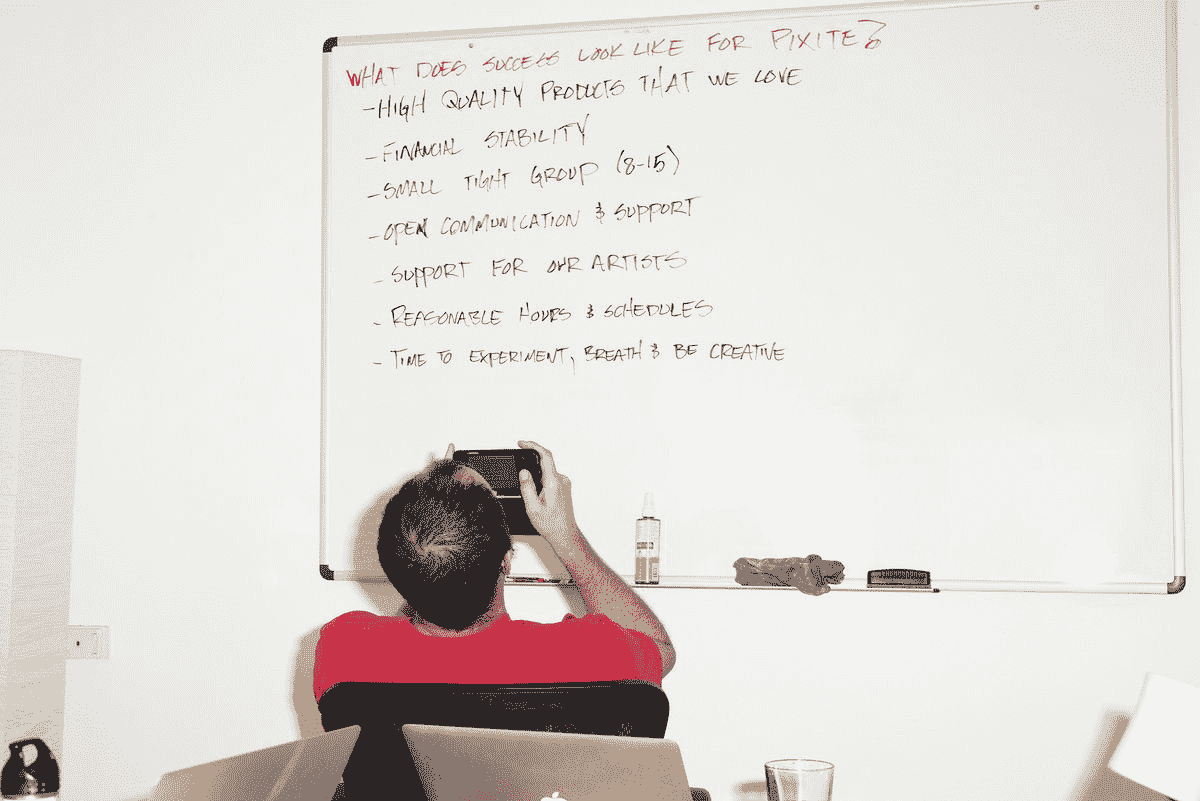 WHAT DOES SUCCESS LOOK LIKE FOR PIXITE?
-HIGH QUALITY PRODUCTS THAT WE LOVE
-FINANCIAL STABILITY
-SMALL TIGHT GROUP (8-15)
-OPEN COMMUNICATION & SUPPORT
- SUPPORT FOR OUR ARTISTS
- REASONABLE HOURS & SCHEDULES
- TIME TO EXPERIMENT, BREATH & BE CREATIVE